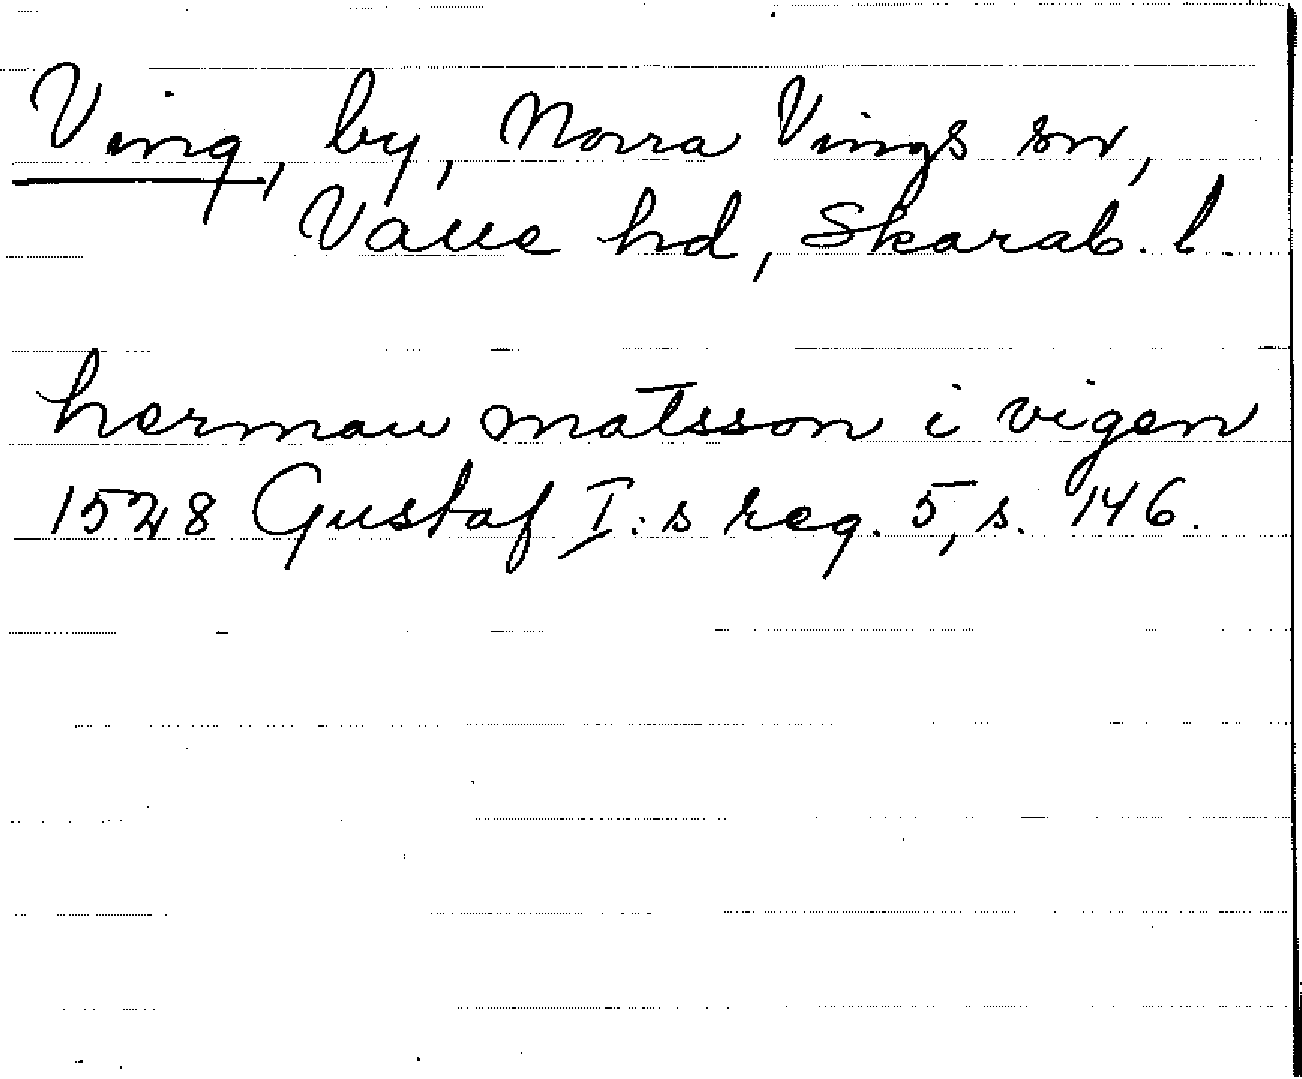 Ving, by, Norra Vings sn,
Valle hd, Skarab. l.
herman matsson i vigen
1528 Gustaf I:s reg. 5, s. 146.